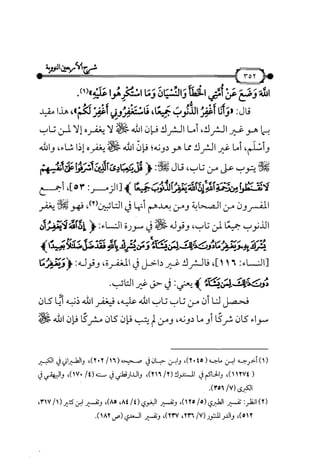 شرح الأربعين النووية
٣٥٢
اللهَ وَضَعَ عَنْ أُمَّتِي الْخَطَأَ وَالنِّسْيَانَ وَمَا اسْتُكْرِهُوا عَلَيْهِ»(١).
قال: «وَأَنَا أَغْفِرُ الذُّنُوبَ جَمِيعًا، فَاسْتَغْفِرُونِي أَغْفِرْ لَكُمْ»، هذا مقيد
بما هو غير الشرك، أما الشرك فإن الله ﷻ لا يغفره إلا لمن تاب
وأسلم، أما غير الشرك مما هو دونه؛ فإنَّ الله ﷻ يغفره إذا شاء، والله
ﷻ يتوب على من تاب، قال ﷻ: ﴿قُلْ يَاعِبَادِيَ الَّذِينَ أَسْرَفُوا عَلَى أَنفُسِهِمْ
لَا تَقْنَطُوا مِن رَّحْمَةِ اللَّهِ إِنَّ اللَّهَ يَغْفِرُ الذُّنُوبَ جَمِيعًا﴾ [الزمر: ٥٣]، أجمع
المفسرون من الصحابة ومن بعدهم أنها في التائبين(٢)، فهو يغفر
الذنوب جميعًا لمن تاب، وقوله ﷻ في سورة النساء: ﴿إِنَّ اللَّهَ لَا يَغْفِرُ أَن
يُشْرَكَ بِهِ وَيَغْفِرُ مَا دُونَ ذَلِكَ لِمَن يَشَاءُ وَمَن يُشْرِكْ بِاللَّهِ فَقَدْ ضَلَّ ضَلَالًا بَعِيدًا﴾
[النساء: ١١٦]، فالشرك غير داخل في المغفرة، وقوله: ﴿وَيَغْفِرُ مَا
دُونَ ذَلِكَ لِمَن يَشَاءُ﴾ يعني: في حق غير التائب.
فحصل لنا أن من تاب تاب الله عليه، فيغفر الله ذنبه أيًّا كان
سواء كان شركًا أو ما دونه، ومن لم يتب فإن كان مشركًا فإن الله ﷻ
(١) أخرجه ابن ماجه (٢٠٤٥)، وابن حبان في صحيحه (١٦/ ٢٠٢)، والطبراني في الكبير
(١١٢٧٤)، والحاكم في المستدرك (٢/ ٢١٦)، والدارقطني في سننه (٤/ ١٧٠)، والبيهقي في
الكبرى (٧/ ٣٥٦).
(٢) انظر: تفسير الطبري (٥/ ١٢٥)، وتفسير البغوي (٤/ ٨٤، ٨٥)، وتفسير ابن كثير (١/ ٣١٧،
٥١٢)، والدر المنثور (٧/ ٢٣٦، ٢٣٧)، وتفسير السعدي (ص ١٨٢).